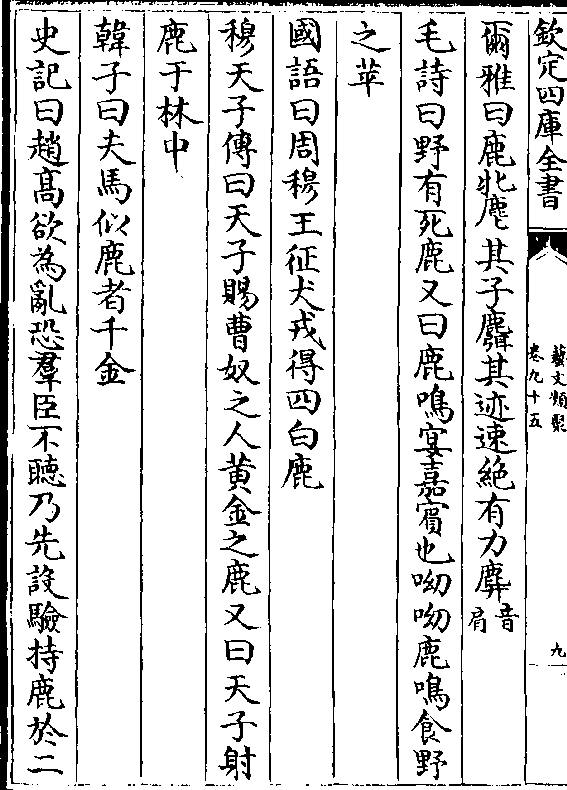 欽定四庫全書
藝文類聚
卷九十五
九
爾雅曰鹿牝麀其子麛其迹速絶有力麉音肩
毛詩曰野有死鹿又曰鹿鳴宴嘉賔也呦呦鹿鳴食野
之苹
國語曰周穆王征犬戎得四白鹿
穆天子傳曰天子賜曹奴之人黄金之鹿又曰天子射
鹿于林中
韓子曰夫馬似鹿者千金
史記曰趙髙欲為亂恐羣臣不聽乃先設驗持鹿於二